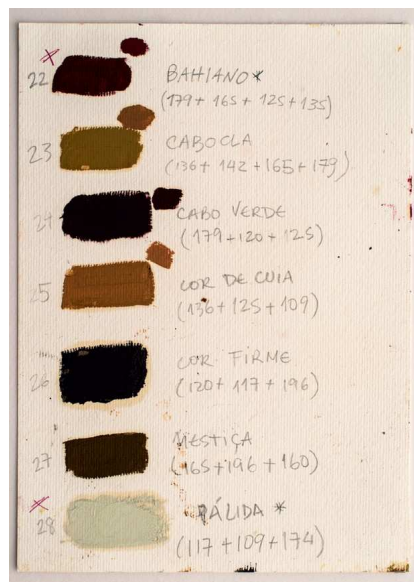 22 BAHIANO*
(179+ 165 + 125 + 135)
23 CABOCLA
(136+ 142 +165 + 179)
24 CABO VERDE
(179+120 + 125)
25 COR DE CUIA
(136+ 125 + 109)
26 COR FIRME
(120+ 117 + 196)
27 MESTIÇA
(165+196 + 160)
28 PÁLIDA *
(117 +109+174)